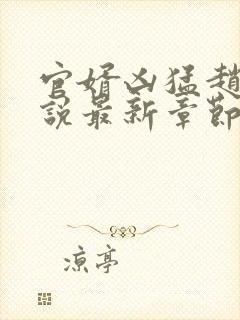 官婿凶猛趙
說最新章節
涼亭